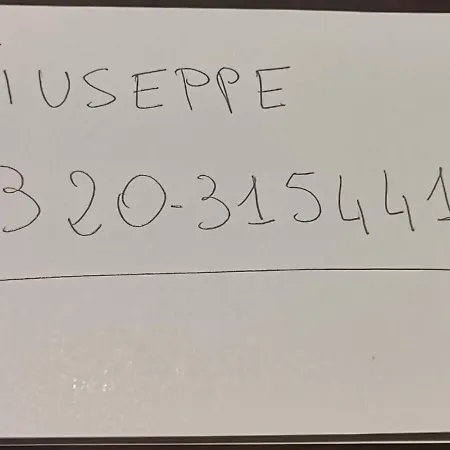 IUSEPPE
320-315441